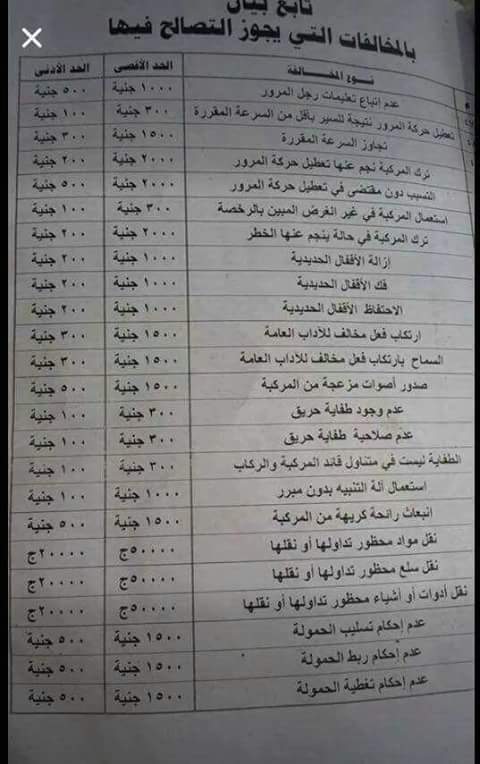 تابع بيان
بالمخالفات التي يجوز التصالح فيها
نوع المخالفة الحد الأقصى الحد الأدنى
عدم إتباع تعليمات رجل المرور ١٠٠٠ جنية ٥٠٠ جنية
تعطيل حركة المرور نتيجة للسير بأقل من السرعة المقررة ٣٠٠ جنية ١٠٠ جنية
تجاوز السرعة المقررة ١٥٠٠ جنية ٣٠٠ جنية
ترك المركبة نجم عنها تعطيل حركة المرور ٢٠٠٠ جنية ٢٠٠ جنية
التسبب دون مقتضى في تعطيل حركة المرور ٢٠٠٠ جنية ٥٠٠ جنية
استعمال المركبة في غير الغرض المبين بالرخصة ٣٠٠ جنية ١٠٠ جنية
ترك المركبة في حالة ينجم عنها الخطر ٢٠٠٠ جنية ٢٠٠ جنية
إزالة الأقفال الحديدية ١٠٠٠ جنية ٢٠٠ جنية
فك الأقفال الحديدية ١٠٠٠ جنية ٢٠٠ جنية
الاحتفاظ الأقفال الحديدية ١٠٠٠ جنية ٢٠٠ جنية
ارتكاب فعل مخالف للآداب العامة ١٥٠٠ جنية ٣٠٠ جنية
السماح بارتكاب فعل مخالف للآداب العامة ١٥٠٠ جنية ٣٠٠ جنية
صدور أصوات مزعجة من المركبة ١٥٠٠ جنية ٥٠٠ جنية
عدم وجود طفاية حريق ٣٠٠ جنية ١٠٠ جنية
عدم صلاحية طفاية حريق ٣٠٠ جنية ١٠٠ جنية
الطفاية ليست في متناول قائد المركبة والركاب ٣٠٠ جنية ١٠٠ جنية
استعمال ألة التنبيه بدون مبرر ١٠٠٠ جنية ١٠٠ جنية
انبعاث رائحة كريهة من المركبة ١٥٠٠ جنية ٥٠٠ جنية
نقل مواد محظور تداولها أو نقلها ٥٠٠٠٠ج ٢٠٠٠٠ج
نقل سلع محظور تداولها أو نقلها ٥٠٠٠٠ج ٢٠٠٠٠ج
نقل أدوات أو أشياء محظور تداولها أو نقلها ٥٠٠٠٠ج ٢٠٠٠٠ج
عدم إحكام تسليب الحمولة ١٥٠٠ جنية ٥٠٠ جنية
عدم إحكام ربط الحمولة ١٥٠٠ جنية ٥٠٠ جنية
عدم إحكام تغطية الحمولة ١٥٠٠ جنية ٥٠٠ جنية